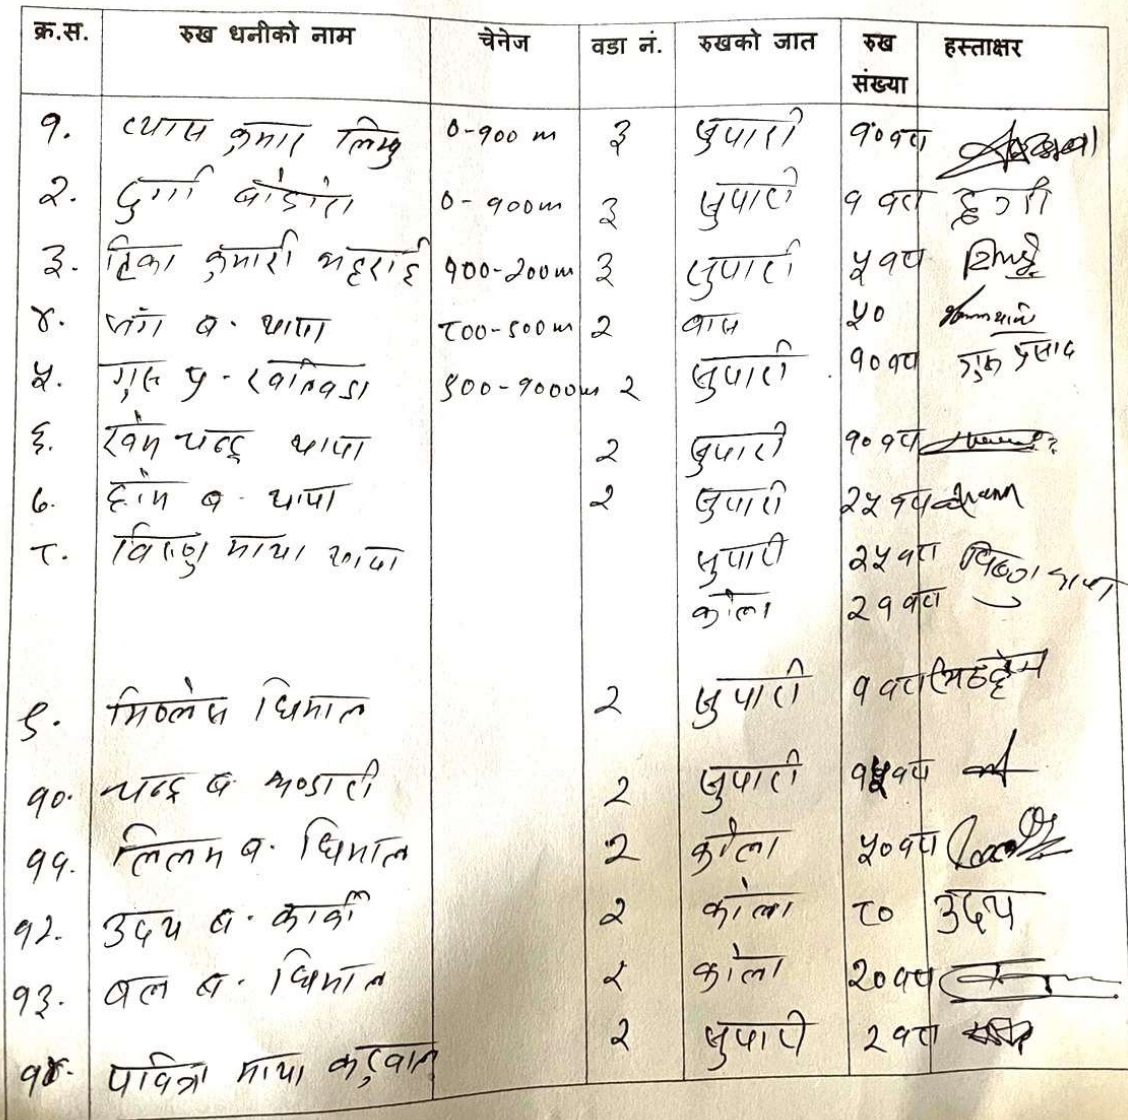 क्र.स. रुख धनीको नाम चेनेज वडा नं. रुखको जात रुख संख्या हस्ताक्षर
१. कुमार लिम्बु 0-१०० m ३ सुपारी १० वटा
२. दुर्गा 0-१००m ३ सुपारी १ वटा दुर्गा
३. टिका कुमारी भट्टराई १००-२००m ३ सुपारी ५ वटा
४. जंग ब. थापा ८००-९००m २ बास ५०
५. गुरु प्र. खतिवडा ९००-१०००m २ सुपारी १० वटा गुरु प्रसाद
६. खेम चन्द्र थापा २ सुपारी १० वटा
७. होम ब. थापा २ सुपारी २५ वटा
८. विष्णु माया थापा सुपारी २५ वटा विष्णु माया
केला २१ वटा
९. मिथलेस धिमाल २ सुपारी १ वटा
१०. चन्द्र ब. भण्डारी २ सुपारी वटा
११. लिलम ब. धिमाल २ केला ५० वटा
१२. उदय ब. कार्की २ केला ८० उदय
१३. बल ब. धिमाल २ केला २० वटा
१४. पवित्रा माया कटुवाल २ सुपारी २ वटा